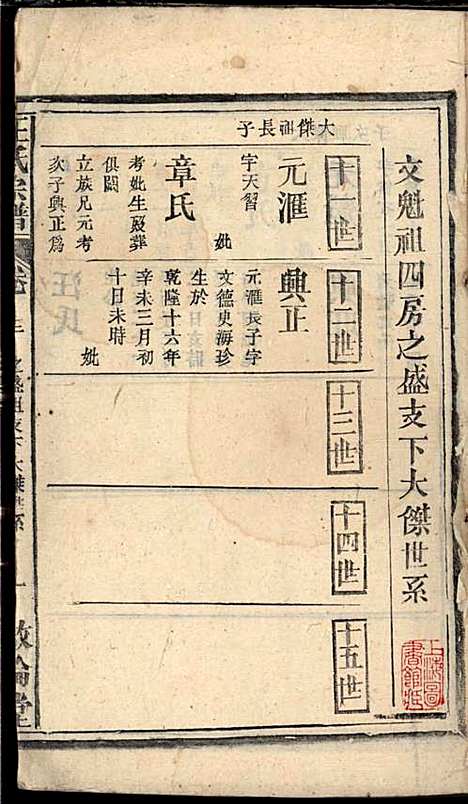 文魁祖四房之盛支下大傑世系
大傑祖長子
十一世
元滙
字天習
妣
章氏
考妣生歿葬
俱闕
立族兄元考
次子興正爲
十二世
興正
元滙長子字
文德史海珍
生於
乾隆十六年
辛未三月初
十日未時
妣
十三世
十四世
十五世
上海圖
書館藏
氏宗譜
三
之盛祖支下大傑世系
一
敦倫堂